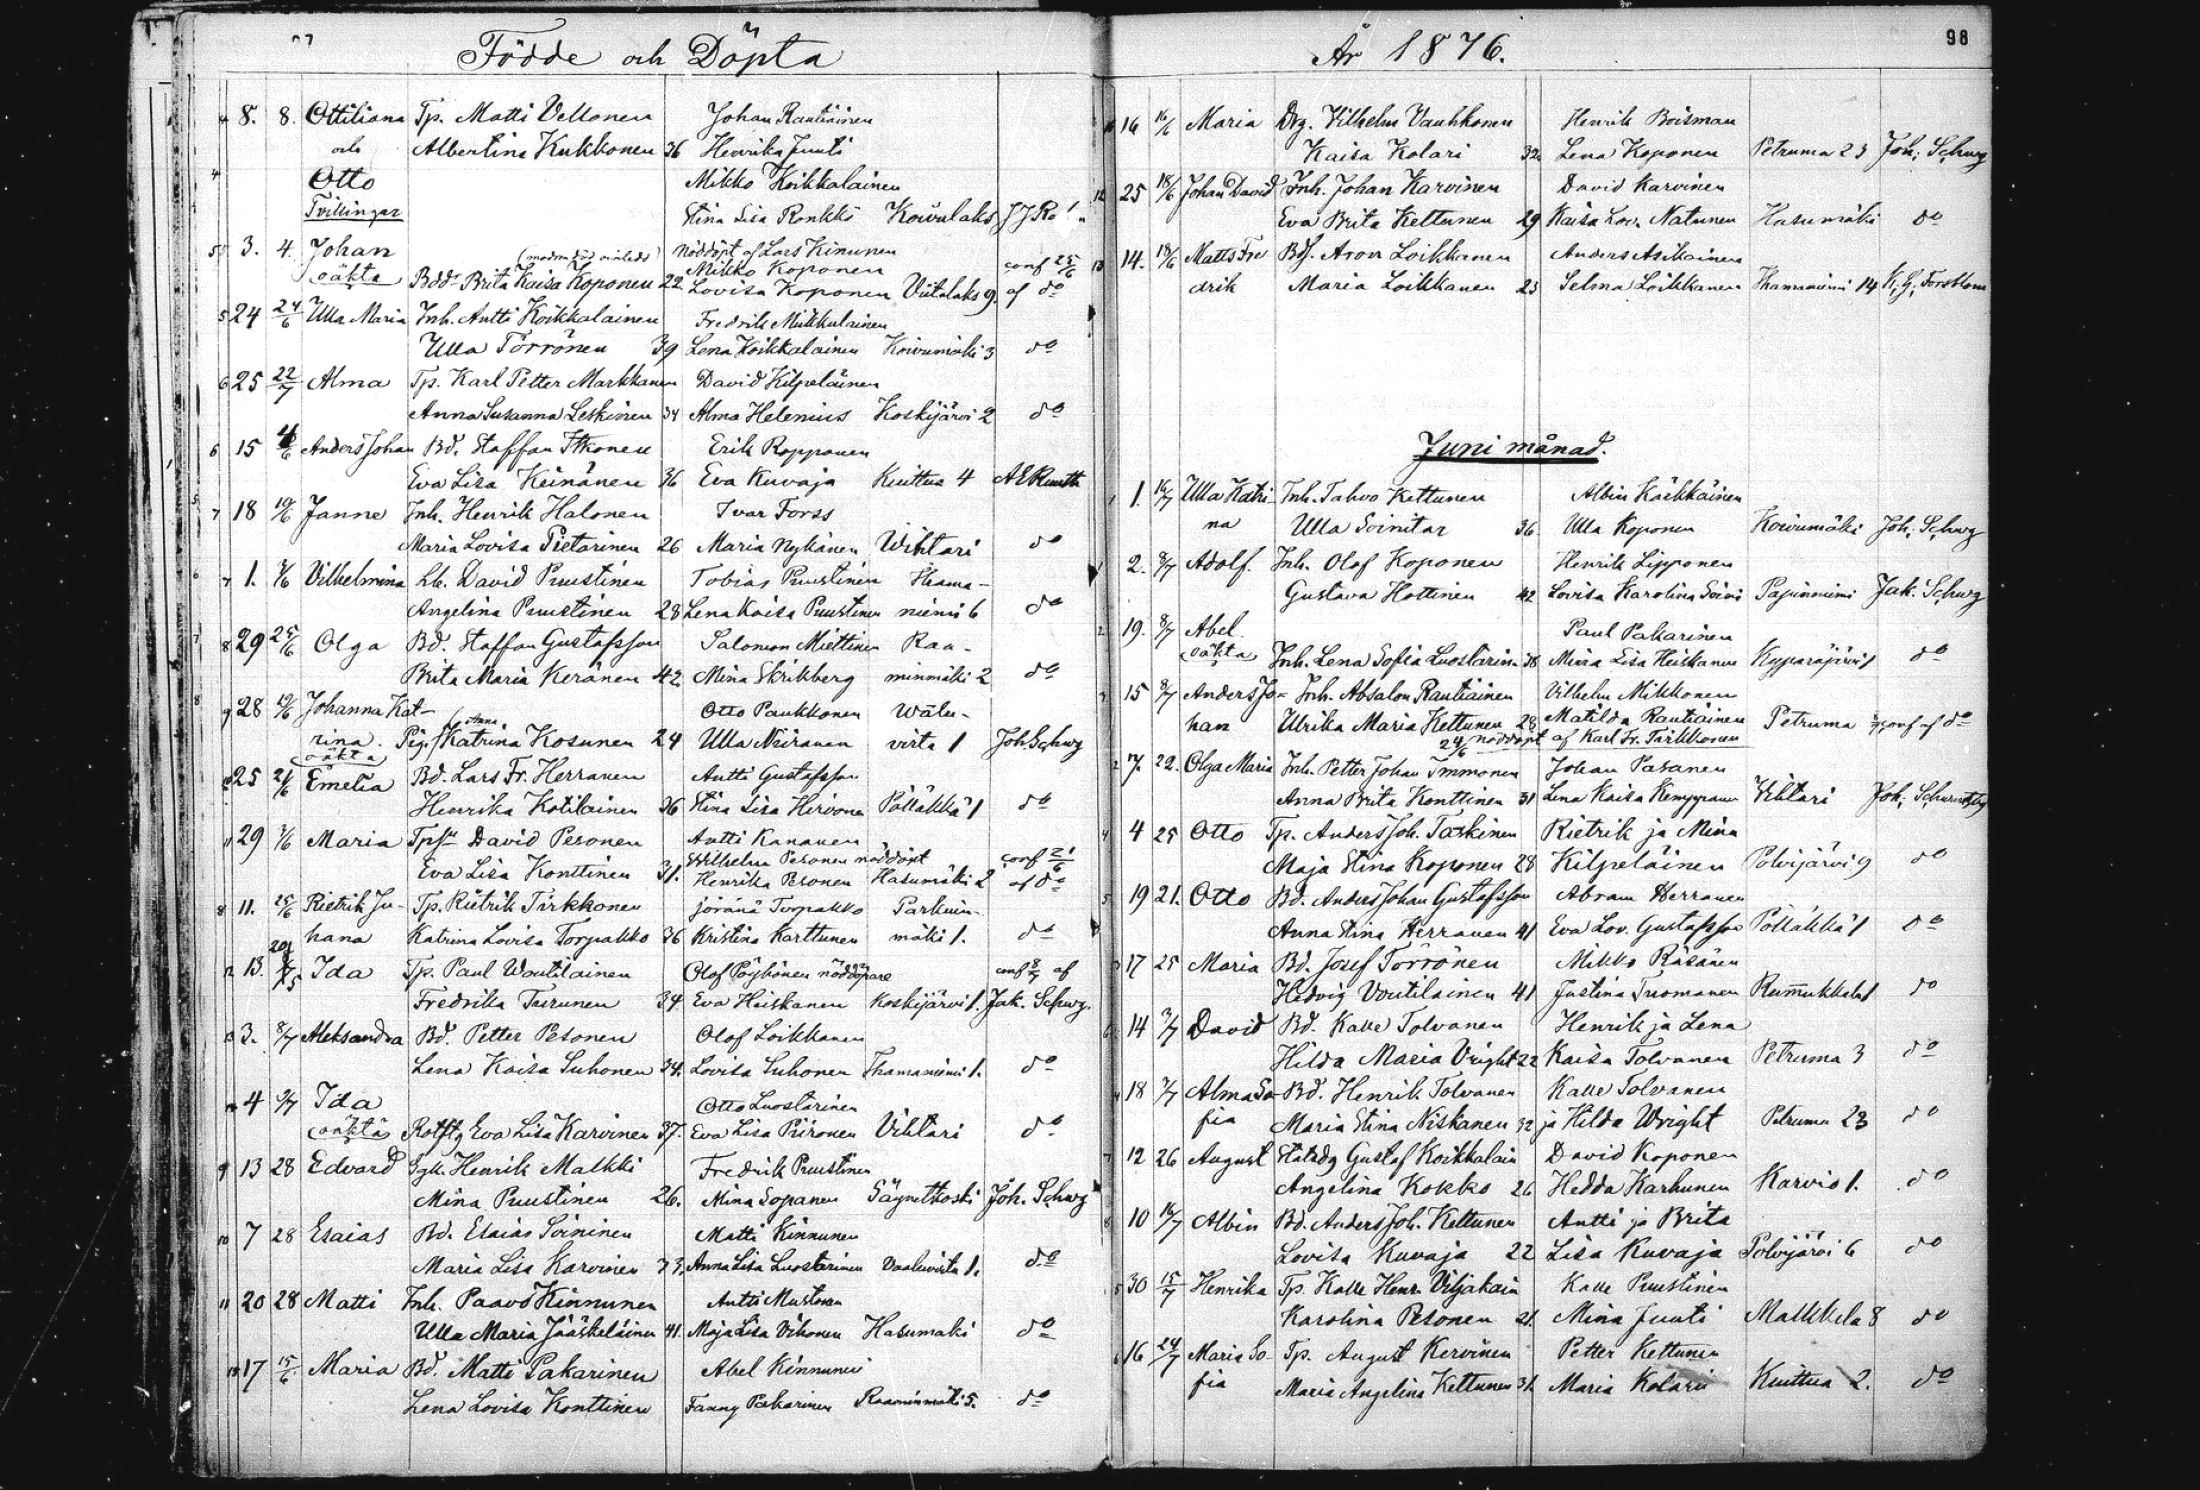 Födde och Döpta
8. 8. Ottiliana Tp. Matti Veltonen Johan Rautiainen
och Albertina Kukkonen 36 Henrika Juuti
Otto Mikko Koikkalainen
Tvillingar Stina Lisa Ronkko Koivulaks
3. 4. Johan Nöddöpt af Lars Kinunen
Mikko Koponen conf 25/6
oäkta Brita Kaisa Koponen 22 Lovisa Koponen Viitalaks 9. af do
24 24/6 Ulla Maria Inh. Antti Koikkalainen Fredrik Miikkulainen
Ulla Törrönen 39 Lena Koikkalainen Koivumäki 3 do
25 22/7 Alma Tp. Karl Petter Markkanen David Kilpeläinen
Anna Susanna Leskinen 34 Alma Helenius Koskijärvi 2 do
15 Anders Johan Bd. Staffan Itkonen Erik Ropponen
Eva Lisa Keinänen 36 Eva Kuvaja Kuittua 4
18 Janne Inh. Henrik Halonen Ivar Forss
Maria Lovisa Pietarinen 26 Maria Nykänen Wihtari do
1. Vilhelmina Lb. David Puustinen Tobias Puustinen Thama-
Angelina Puustinen 28 Lena Kaisa Puustinen niemi 6 do
29 25/6 Olga Bd. Staffan Gustafsson Salomon Miettinen Raa-
Brita Maria Keränen 42 Mina Skrikberg minmäki 2 do
28 Johanna Kat- Otto Paukkonen Wälu-
Anna
rina. Pig. Katrina Kosunen 24 Ulla Niiranen virta 1 Joh Schwg
oäkta
25 Emelia Bd. Lars Fr. Herranen Antti Gustafsson
Henrika Kotilainen 36 Stina Lisa Hirvonen Pölläkkä 1 do
29 Maria David Pesonen Antti Kananen
Wilhelm Pesonen nöddöpt
Eva Lisa Konttinen 31. Henrika Pesonen Hasumäki 2 af do
11. 25/6 Rietrik Ju- Tp. Rietrik Tirkkonen Torpakko Parkuin-
hana Katrina Lovisa Torpakko 36 Kristina Karttunen mäki 1. do
13. Ida Tp. Paul Woutilainen Olof Pöyhönen nöddöpare conf 8/7 af
Fredrika Turunen 34 Eva Heiskanen Koskijärvi 1. Jak. Schwg.
3. 8/7 Aleksandra Bd. Petter Pesonen Olof Loikkanen
Lena Kaisa Suhonen 34. Lovisa Suhonen Thamaniemi 1. do
4 9/7 Ida Otto Luostarinen
oäkta Eva Lisa Karvinen 37. Eva Lisa Piironen Vihtari do
13 28 Edvard Henrik Malkki Fredrik Puustinen
Mina Puustinen 26. Mina Sopanen Säynetkoski Joh. Schwg
7 28 Esaias Bd. Esaias Soininen Matti Kinnunen
Maria Lisa Karvinen 33. Anna Lisa Luostarinen Vaaluvirta 1. do
20 28 Matti Inh. Paavo Kinnunen Antti Mustonen
Ulla Maria Jääskeläinen 41. Maja Lisa Vihonen Hasumäki do
17 15/6 Maria Bd. Matti Pakarinen Abel Kinnunen
Lena Lovisa Konttinen Fanny Pakarinen Raaminmäki 5. do
År 1876.
98
16 Maria Drg. Vilhelm Vauhkonen Henrik Boisman
Kaisa Kolari 32. Lena Koponen Petruma 23 Joh; Schwg
25 18/6 Johan David Inh. Johan Karvinen David Karvinen
Eva Brita Kettunen 29 Kaisa Lov. Natunen Hasumäki do
14. 18/6 Matts Fre Aron Loikkanen Anders Asikainen
drik Maria Loikkanen 23 Selma Loikkanen Thamaniemi 14 K. G. Forsblom
Juni månad.
1. 16/7 Ulla Katri- Inh. Tahvo Kettunen Albin Käkkäinen
na Ulla Soinitar 36. Ulla Koponen Koivumäki Joh; Schwg
2. 8/7 Adolf. Inh. Olof Koponen Henrik Lipponen
Gustava Hottinen 42 Lovisa Karolina Soini Papinniemi Jak. Schwg
19. 8/7 Abel. Paul Pakarinen
oäkta Inh. Lena Sofia Luostarin 38 Miina Lisa Heiskanen Kyparäjärvi 1 do
15 8/7 Anders Jo- Inh. Absalon Rautiainen Vilhelm Mikkonen
han Ulrika Maria Kettunen 28 Matilda Rautiainen Petruma conf af do
24/6 nöddöpt af Karl Fr. Tirkkonen
7. 22. Olga Maria Inh. Petter Johan Immonen Johan Pasanen
Anna Brita Konttinen 31 Lena Kaisa Kemppanen Vihtari
4 25 Otto Tp. Anders Joh. Taskinen Rietrik ja Mina
Maja Stina Koponen 28 Kilpeläinen Polvijärvi 9 do
19 21. Otto Bd. Anders Johan Gustafsson Abram Herranen
Anna Stina Herranen 41 Eva Lov. Gustafsson Pölläkkä 1 do
17 25 Maria Bd. Josef Törrönen Mikko Räsänen
Hedvig Voutilainen 41 Justina Tuomanen Rummukkala 1 do
14 2/7 David Bd. Kalle Tolvanen Henrik ja Lena
Hilda Maria Vright 22 Kaisa Tolvanen Petruma 3 do
18 Alma So- Bd. Henrik Tolvanen Kalle Tolvanen
fia Maria Stina Niskanen 32 ja Hilda Wright Petruma 23 do
12 26 August Gustaf Koikkalain David Koponen
Angelina Kokko 26 Hedda Karhunen Karvio 1. do
10 16/7 Albin Bd. Anders Joh. Kettunen Antti ja Brita
Lovisa Kuvaja 22 Lisa Kuvaja Polvijärvi 6 do
30 15/7 Henrika Tp. Kalle Henr. Viljakain Kalle Puustinen
Karolina Pesonen 21. Mina Juuti Malkkila 8 do
16 24/7 Maria So- Tp. August Kervinen Petter Kettunen
fia Maria Angelina Kettunen 31. Maria Kolari Kuittua 2. do